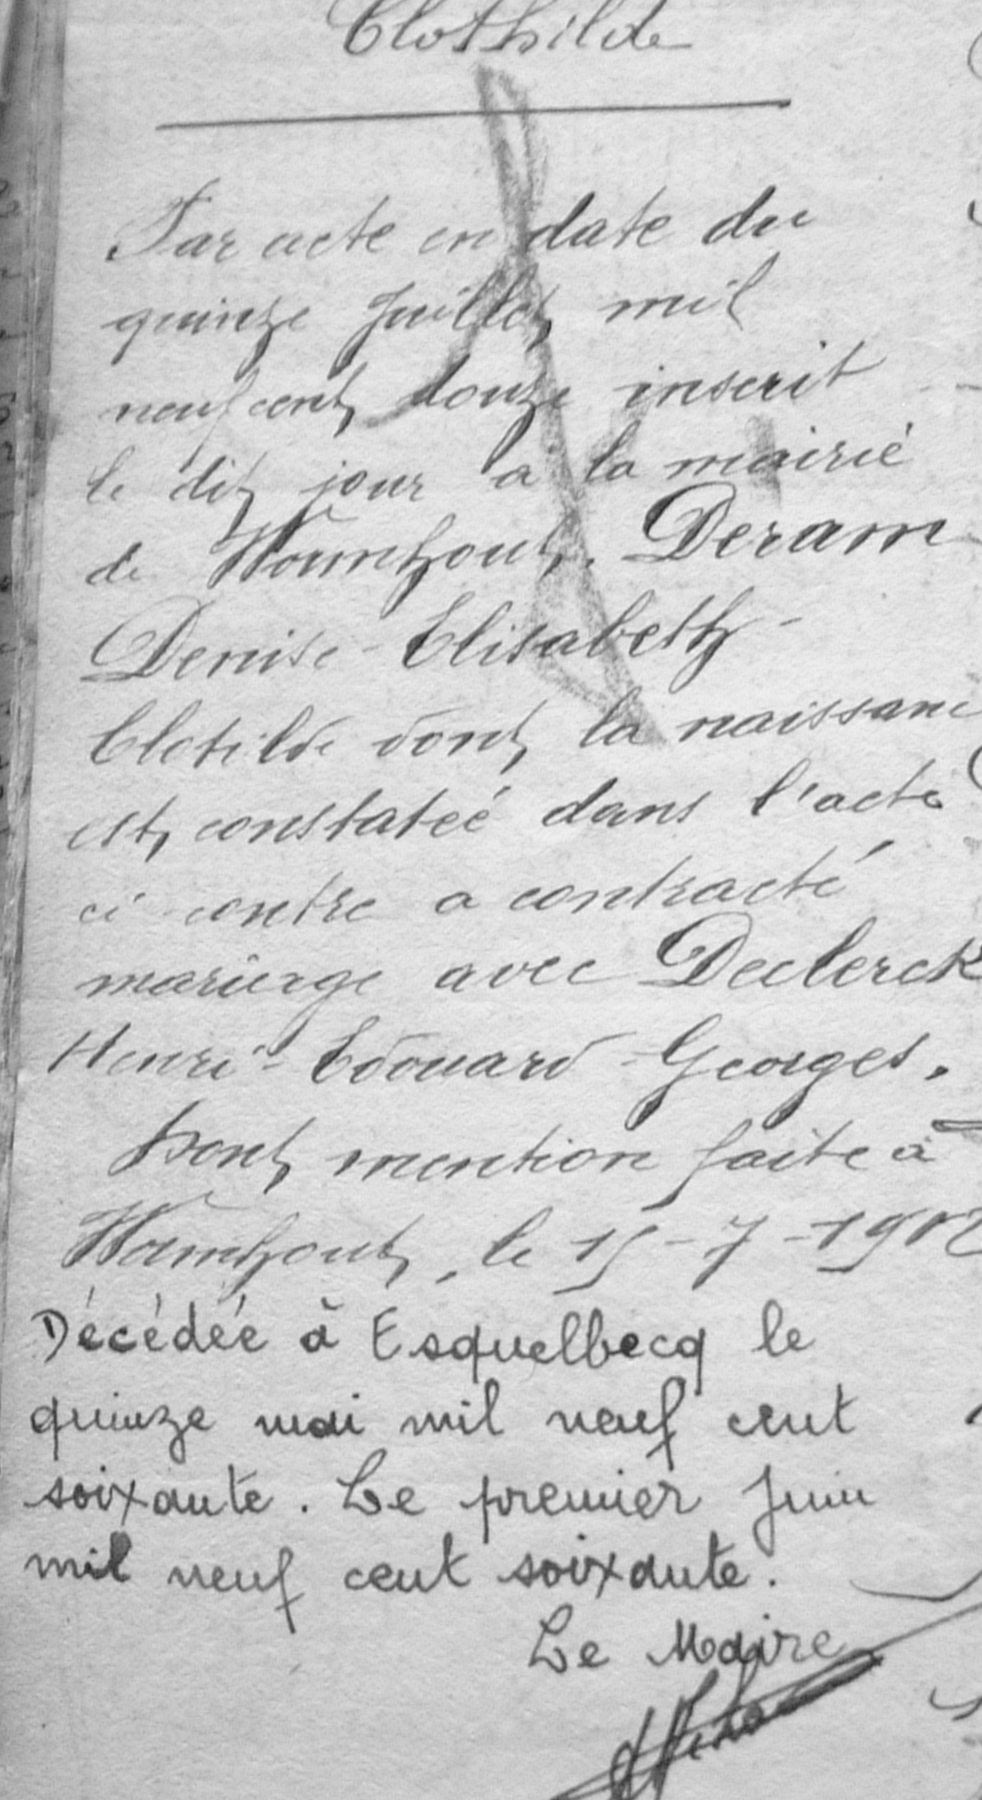 Clothilde
Par acte en date du
quinze Juillet mil
neuf cent douze inscrit
le dit jour à la mairie
de Wormhout. Deram
Denise Elisabeth
Clotilde dont la naissance
est constatée dans l'acte
ci contre a contracté
mariage avec Declerck
Henri-Edouard Georges.
Dont mention faite à
Wormhout, le 15-7-1912
Décédée à Esquelbecq le
quinze mai mil neuf cent
soixante. Le premier Juin
mil neuf cent soixante.
Le Maire